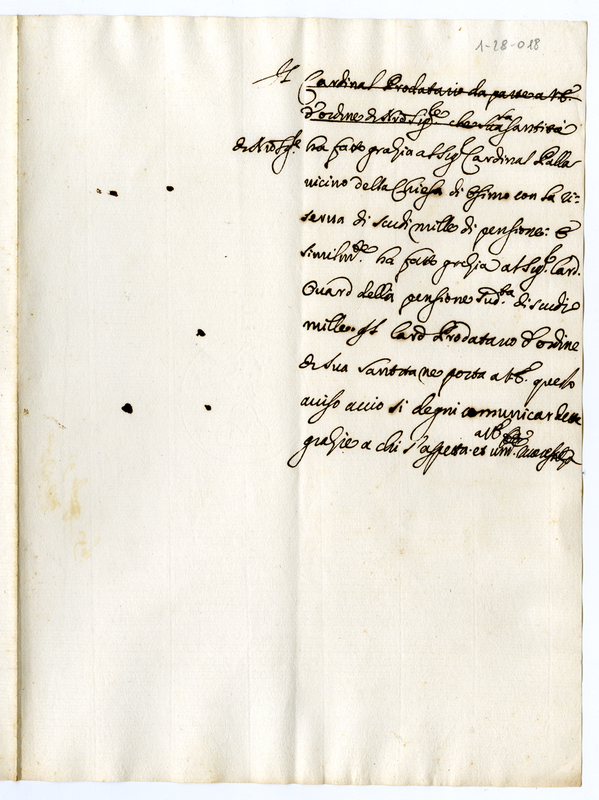 1-28-018
Il Cardinal Prodatario da parte a V.E.
d'ordine di Nro Sigre che Sua Santità
di Nro Sigre ha fatto grazia al Sigr Cardinal Palla
uicino della Chiesa di Osimo con la ri=
serua di scudi mille di pensione: E
similmte ha fatto grazia al Sigr Card.
Ouard della pensione sudta di scudi
mille. Card Prodatario d'ordine
di Sua Santità ne porta a V.E. questo
auiso accio si degni comunicar dette
grazie a chi s'aspetta. et
a V.E.